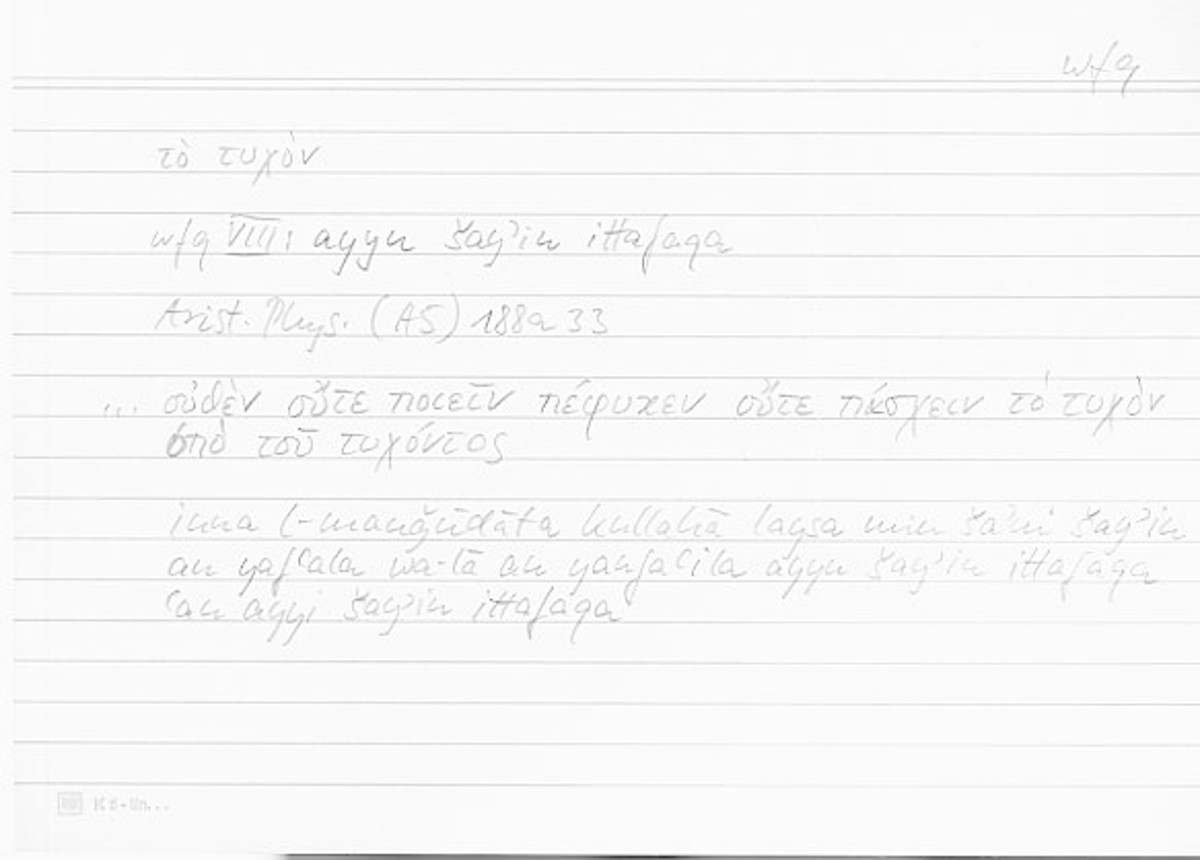 wfq
τὸ τυχὸν
wfq VIII: ayyu šayʾin ittafaqa
Arist. Phys. (A5) 188a 33
... οὐθὲν οὔτε ποιεῖν πέφυκεν οὔτε πάσχειν τὸ τυχὸν
ὑπὸ τοῦ τυχόντος
inna l-mauǧūdāta kullahā laysa min šaʾni šayʾin
an yafʿala wa-lā an yanfaʿila ayyu šayʾin ittafaqa
ʿan ayyi šayʾin ittafaqa